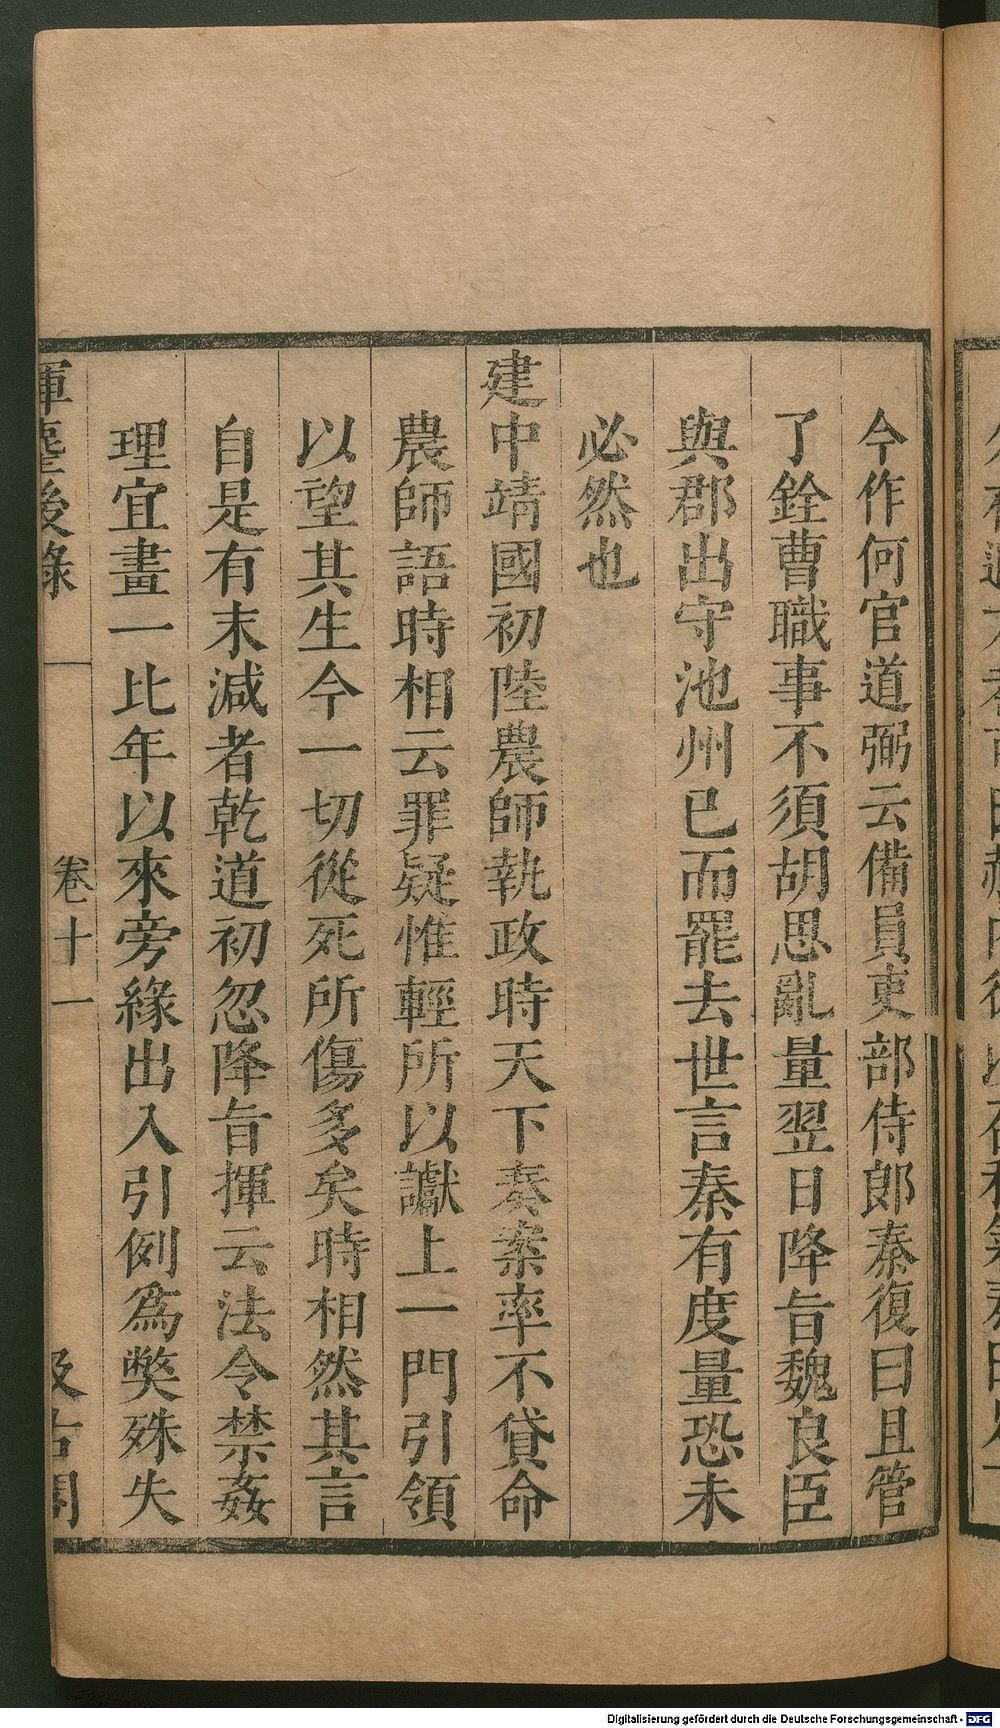 今作何官道弼云備員吏部侍郎秦復曰且管
了銓曹職事不須胡思亂量翌日降旨魏良臣
與郡出守池州已而罷去世言秦有度量恐未
必然也
建中靖國初陸農師執政時天下奏案率不貸命
農師語時相云罪疑惟輕所以讞上一門引領
以望其生今一切從死所傷多矣時相然其言
自是有末減者乾道初忽降旨揮云法令禁姦
理宜畫一比年以來旁緣出入引例爲獘殊失
揮麈後錄
卷十一
汲古閣
Digitalisierung gefördert durch die Deutsche Forschungsgemeinschaft - DFG